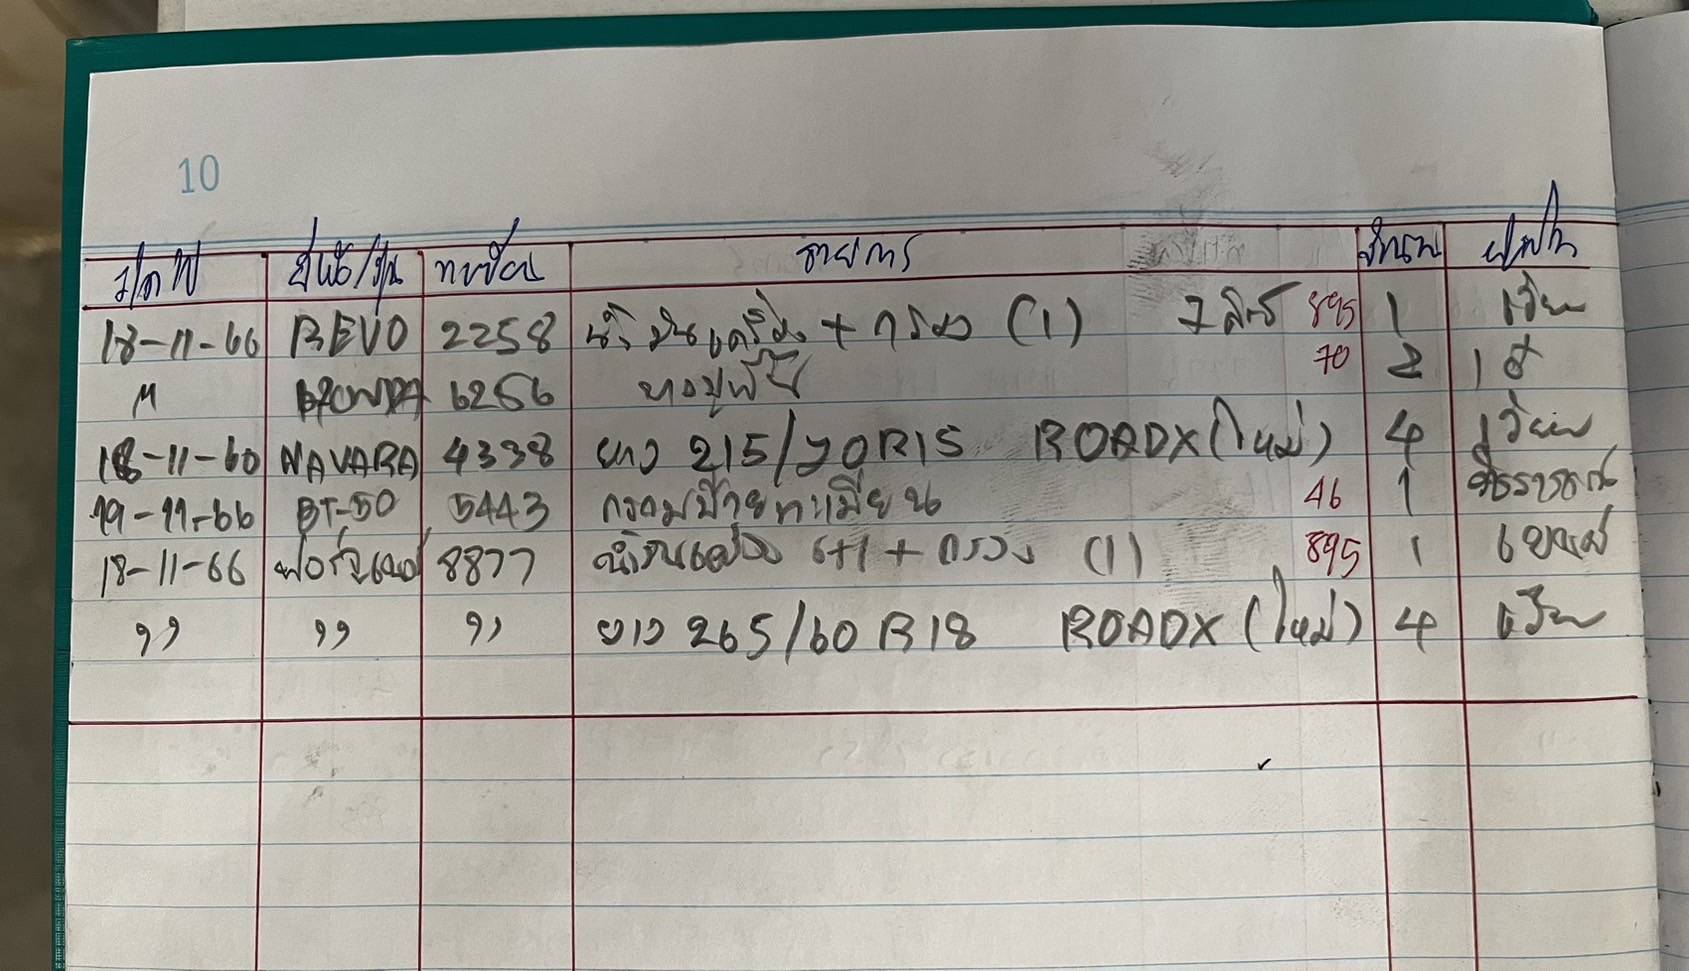 10
ว/ด/ป ยี่ห้อ/รุ่น ทะเบียน รายการ จำนวน
18-11-66 REVO 2258 น้ำมันเครื่อง + กรอง (1) 7 ลิตร 895 1 เวียน
" 6256 70 2
18-11-60 NAVARA 4338 ยาง 215/70R15 ROADX (ใหม่) 4 เวียน
19-11-66 BT-50 5443 กรอบป้ายทะเบียน 46 1
18-11-66 ฟอร์จูนเนอร์ 8877 น้ำมันเครื่อง 6+1 + กรอง (1) 895 1
" " " ยาง 265/60 R18 ROADX (ใหม่) 4 เวียน